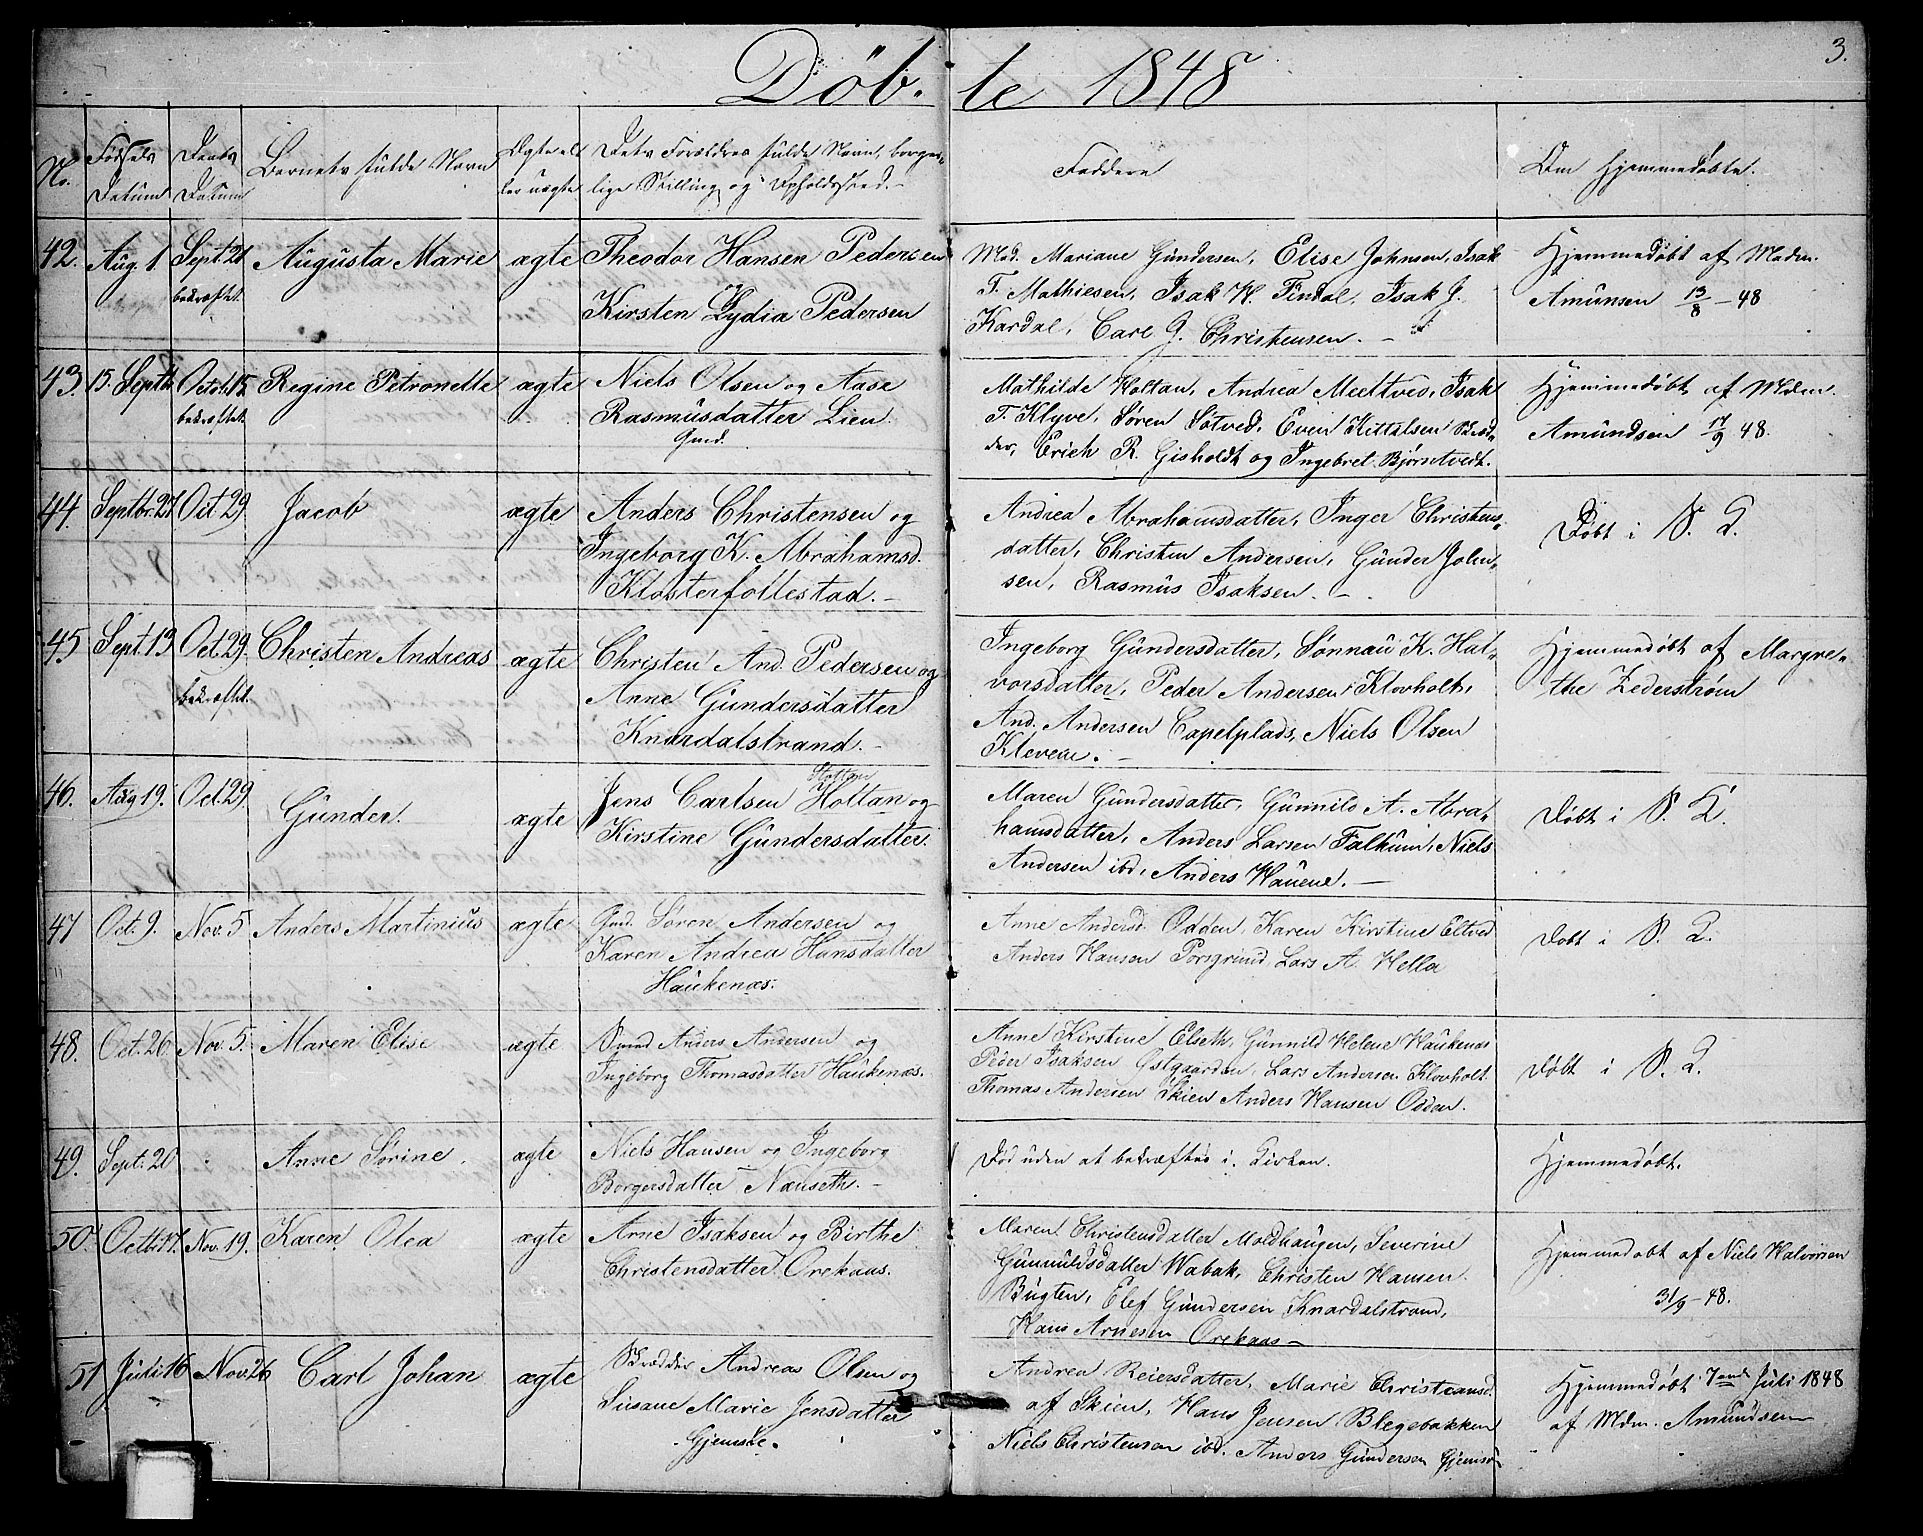 Døb- te 1848
3.
No. Fødsels Datum Daabs Datum Barnets fulde Navn Ægte eller uægte Dets Forældres fulde Navn, borgerlige Stilling og Opholdssted.- Faddere Om hjemmedøbte.
42. Aug. 1. Sept. 21 Augusta Marie ægte Theodor Hansen Pedersen
bekræftet. og
Kirsten Lydia Pedersen
Mad. Mariane Gundersen, Elise Johnsen, Isak
T. Mathiesen, Isak H. Findal, Isak J.
Kardal, Carl J. Christensen. -
Hjemmedøbt af Madm.
Amunsen 13/8 - 48
43. 15. Septbr. Octob. 15 Regine Petronelle ægte Niels Olsen og Aase
bekræftet. Rasmusdatter Lien.
Gmd.
Mathilde Holtan, Andrea Meeltved, Isak
T. Klyve, Søren Søtved, Even Kittelsen Skræd-
der, Erich R. Gisholdt og Ingebret Bjørntvedt.
Hjemmedøbt af Mdm.
Amundsen 17/9 48.
44. Septbr. 27 Oct 29. Jacob ægte Anders Christensen og
Ingeborg K. Abrahamsd.
Klosterfollestad. -
Andrea Abrahamsdatter, Inger Christens-
datter, Christen Andersen, Gunder John-
sen, Rasmus Isaksen. -
Døbt i S. K.
45 Sept. 13 Oct. 29. Christen Andreas ægte Christen And. Pedersen og
bekræftet Anne Gundersdatter
Knardalstrand. -
Ingeborg Gundersdatter, Sønnau K. Hal-
vorsdatter, Peder Andersen Klovholt,
And. Andersen Capelplads, Niels Olsen
Klevene. -
Hjemmedøbt af Margre-
the Zederstrøm
46. Aug 19. Oct. 29 Gunder. ægte Jens Carlsen Holtan og
Kirstine Gundersdatter.
Maren Gundersdatter, Gunnild A. Abra-
hamsdatter, Anders Larsen Falkum, Niels
Andersen ibd, Anders Hauene. -
Døbt i S. K.
47 Oct. 9. Nov. 5 Anders Martinius ægte Gmd. Søren Andersen og
Karen Andrea Hansdatter
Haukenæs.
Anne Andersd. Odden, Karen Kirstine Eltved
Anders Hansen Porsgrund, Lars A. Hella
Døbt i S. K.
48. Oct. 26 Nov. 5. Maren Elise ægte Smed Anders Andersen og
Ingeborg Thomasdatter Haukenæs.
Anne Kirstine Elseth, Gunnild Helene Haukenæs
Peder Isaksen Østgaarden, Lars Andersen Klovholt.
Thomas Andersen Skien Anders Hansen Odden.
Døbt i S. K.
49. Sept. 20 Anne Sørine. ægte Niels Hansen og Ingeborg
Borgersdatter Nænseth. -
Død uden at bekræftes i Kirken.
Hjemmedøbt.
50. Octb. 17. Nov. 19. Karen Olea ægte Arne Isaksen og Birthe
Christensdatter Orekaas.
Maren Christensdatter Moldhaugen, Severine
Gunnuldsdatter Wabak, Christen Hansen
Bugten, Elef Gundersen Knardalstrand,
Hans Arnesen Orekaas -
Hjemmedøbt af Niels Halvorsen
31/9 - 48.
51 Juli 16 Nov. 26 Carl Johan ægte Skrædder Andreas Olsen og
Susane Marie Jensdatter
Gjemsøe.
Andrea Reiersdatter, Marie Christiansd.
af Skien, Hans Jensen Blegebakken
Niels Christensen ibd. Anders Gundersen Gjemsø
Hjemmedøbt 7ende Juli 1848
af Mdm. Amundsen